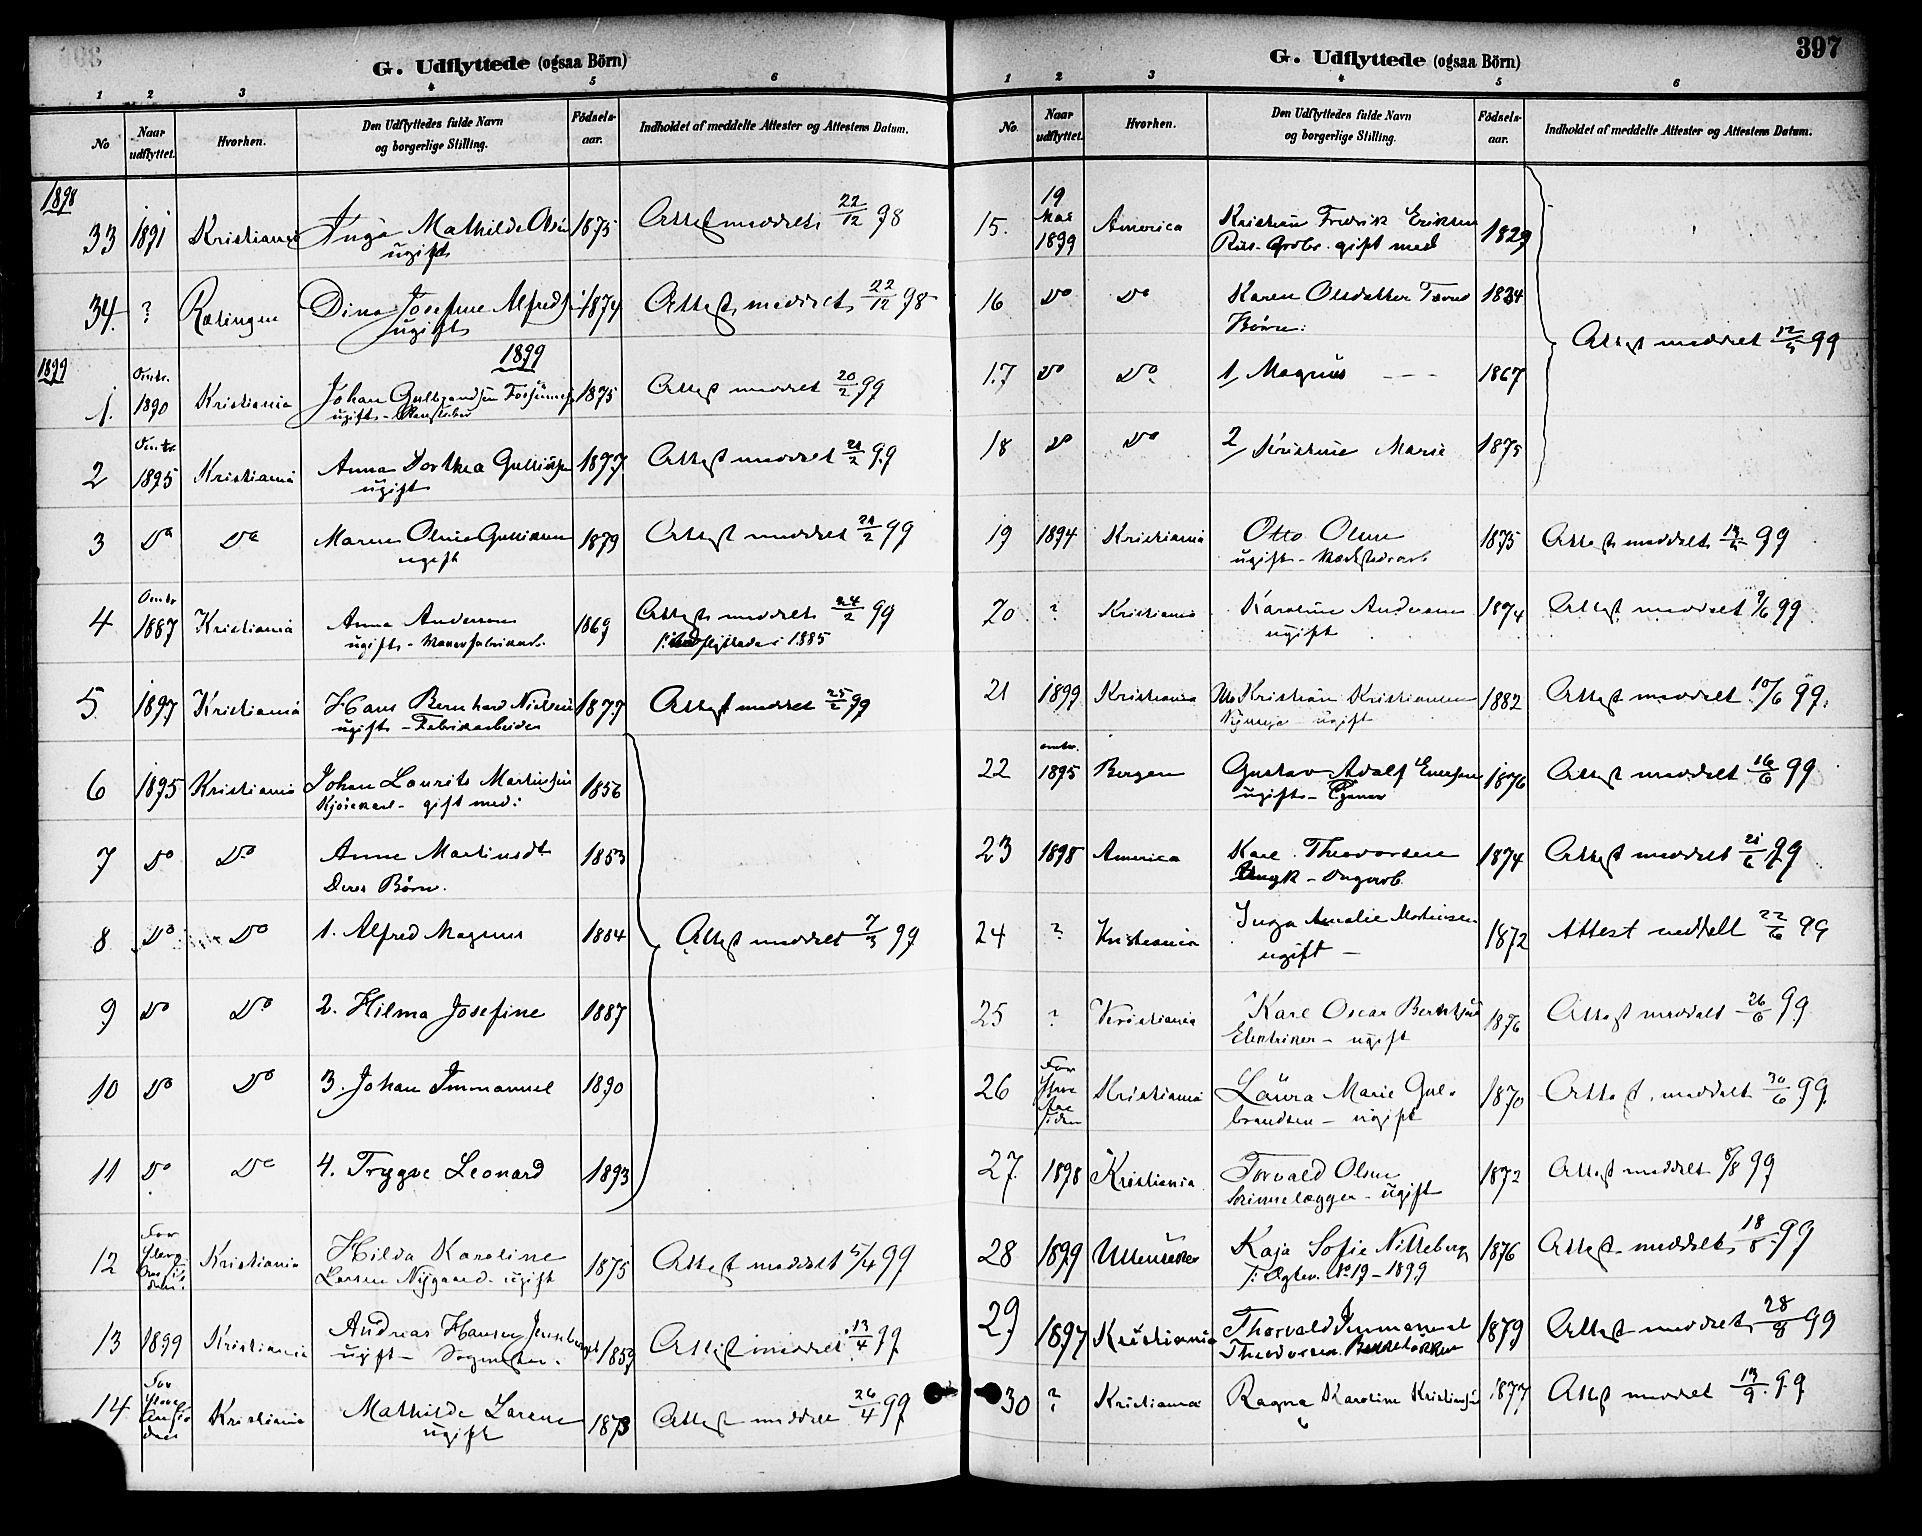 G. Udflyttede (ogsaa Börn)
1 2 3 4 5 6
No Naar udflyttet. Hvorhen. Den Udflyttedes fulde Navn og borgerlige Stilling. Födsels-aar. Indholdet af meddelte Attester og Attestens Datum.
1898
33 1891 Kristiania Inga Mathilde Olsen 1875 Attest meddelt 22/12 98
ugift
34. ? Rælingen Dina Josefine 1874 Attest meddelt 22/12 98
ugift
1899
1899
1. Omtr. 1890 Kristiania Johan 1875 Attest meddelt 20/2 99
ugift
2 Omtr. 1895 Kristiania Anna Dorthea 1877 Attest meddelt 21/2 99
ugift
3 Do Do Maren 1879 Attest meddelt 21/2 99
ugift
4 Omtr 1887 Kristiania Anna Andersen 1869 Attest meddelt 24/2 99
ugift i 1885
5. 1897 Kristiania Hans Bernhard Nielsen 1877 Attest meddelt 25/2 99
ugift - Fabrikarbeider
6 1895 Kristiania Johan Laurits Martinsen 1856
gift med:
7 Do Do Anne Martinsdt 1853
Deres Børn.
8 Do Do 1. Alfred Magnus 1884 Attest meddelt 7/3 99
9 Do Do 2. Hilma Josefine 1887
10 Do Do 3. Johan Immanuel 1890
11 Do Do 4. Trygve Leonard 1893
12 For Kristiania Hilda Karoline 1875 Attest meddelt 5/4 99
Larsen Nygaard - ugift
13 1899 Kristiania Andreas Hansen 1859 Attest meddelt 13/4 99
ugift
14 For Kristiania Mathilde Larsen 1873 Attest meddelt 26/4 99
ugift
G. Udflyttede (ogsaa Börn) 397
1 2 3 4 5 6
No. Naar udflyttet. Hvorhen. Den Udflyttedes fulde Navn og borgerlige Stilling. Födsels-aar. Indholdet af meddelte Attester og Attestens Datum.
15. 19 Mai 1899 America Kristian Fredrik Eriksen 1829
gift med
16 Do Do Karen Olsdatter 1834
Børn:
Attest meddelt 99
17 Do Do 1, Magnus 1867
18 Do Do 2, Kristine Marie 1875
19 1894 Kristiania Otto Olsen 1875 Attest meddelt 99
ugift
20 ? Kristiania Karoline Andersen 1874 Attest meddelt 9/6 99
ugift
21 1899 Kristiania Kristian Kristiansen 1882 Attest meddelt 10/6 99.
ugift
22 omtr. 1895 Bergen Gustav Adolf 1876 Attest meddelt 16/6 99
ugift
23 1898 America Karl Theodorsen 1874 Attest meddelt 21/6 99
24 ? Kristiania Inga Amalie Martinsen 1872 Attest meddelt 22/6 99
ugift -
25 ? Kristiania Karl Oscar 1876 Attest meddelt 26/6 99
ugift
26 For Kristiania Laura Marie Gul- 1870 Attest meddelt 30/6 99
brandsen - ugift
27. 1898 Kristiania Torvald Olsen 1872 Attest meddelt 8/8 99
ugift
28 1899 Ullensaker Kaja Sofie Nitteberg 1876 Attest meddelt 18/8 99
No 19 - 1899
29 1897 Kristiania Thorvald Immanuel 1879 Attest meddelt 28/8 99
Theodorsen
30 ? Kristiania Ragna Karoline Kristiansen 1877 Attest meddelt 13/9 99